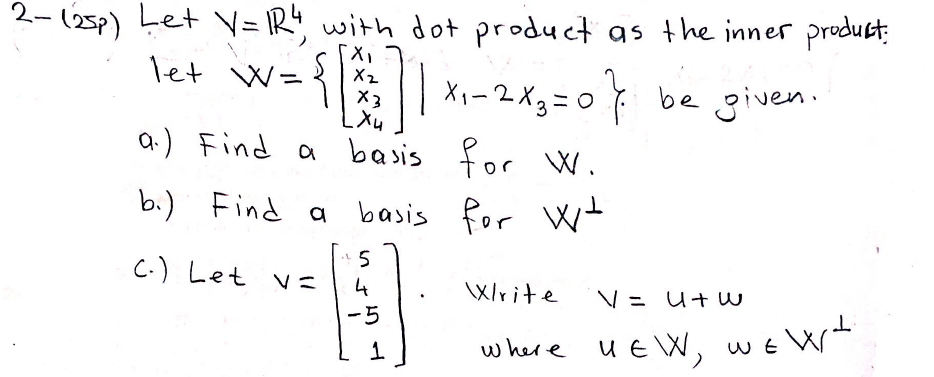 2- (25p) Let V = ℝ⁴, with dot product as the inner product.
let W = { [x₁ x₂ x₃ x₄] | x₁ - 2x₃ = 0 } be given.
a.) Find a basis for W.
b.) Find a basis for W⊥
c.) Let v = [5 4 -5 1] . Write v = u + w
where u ∈ W, w ∈ W⊥